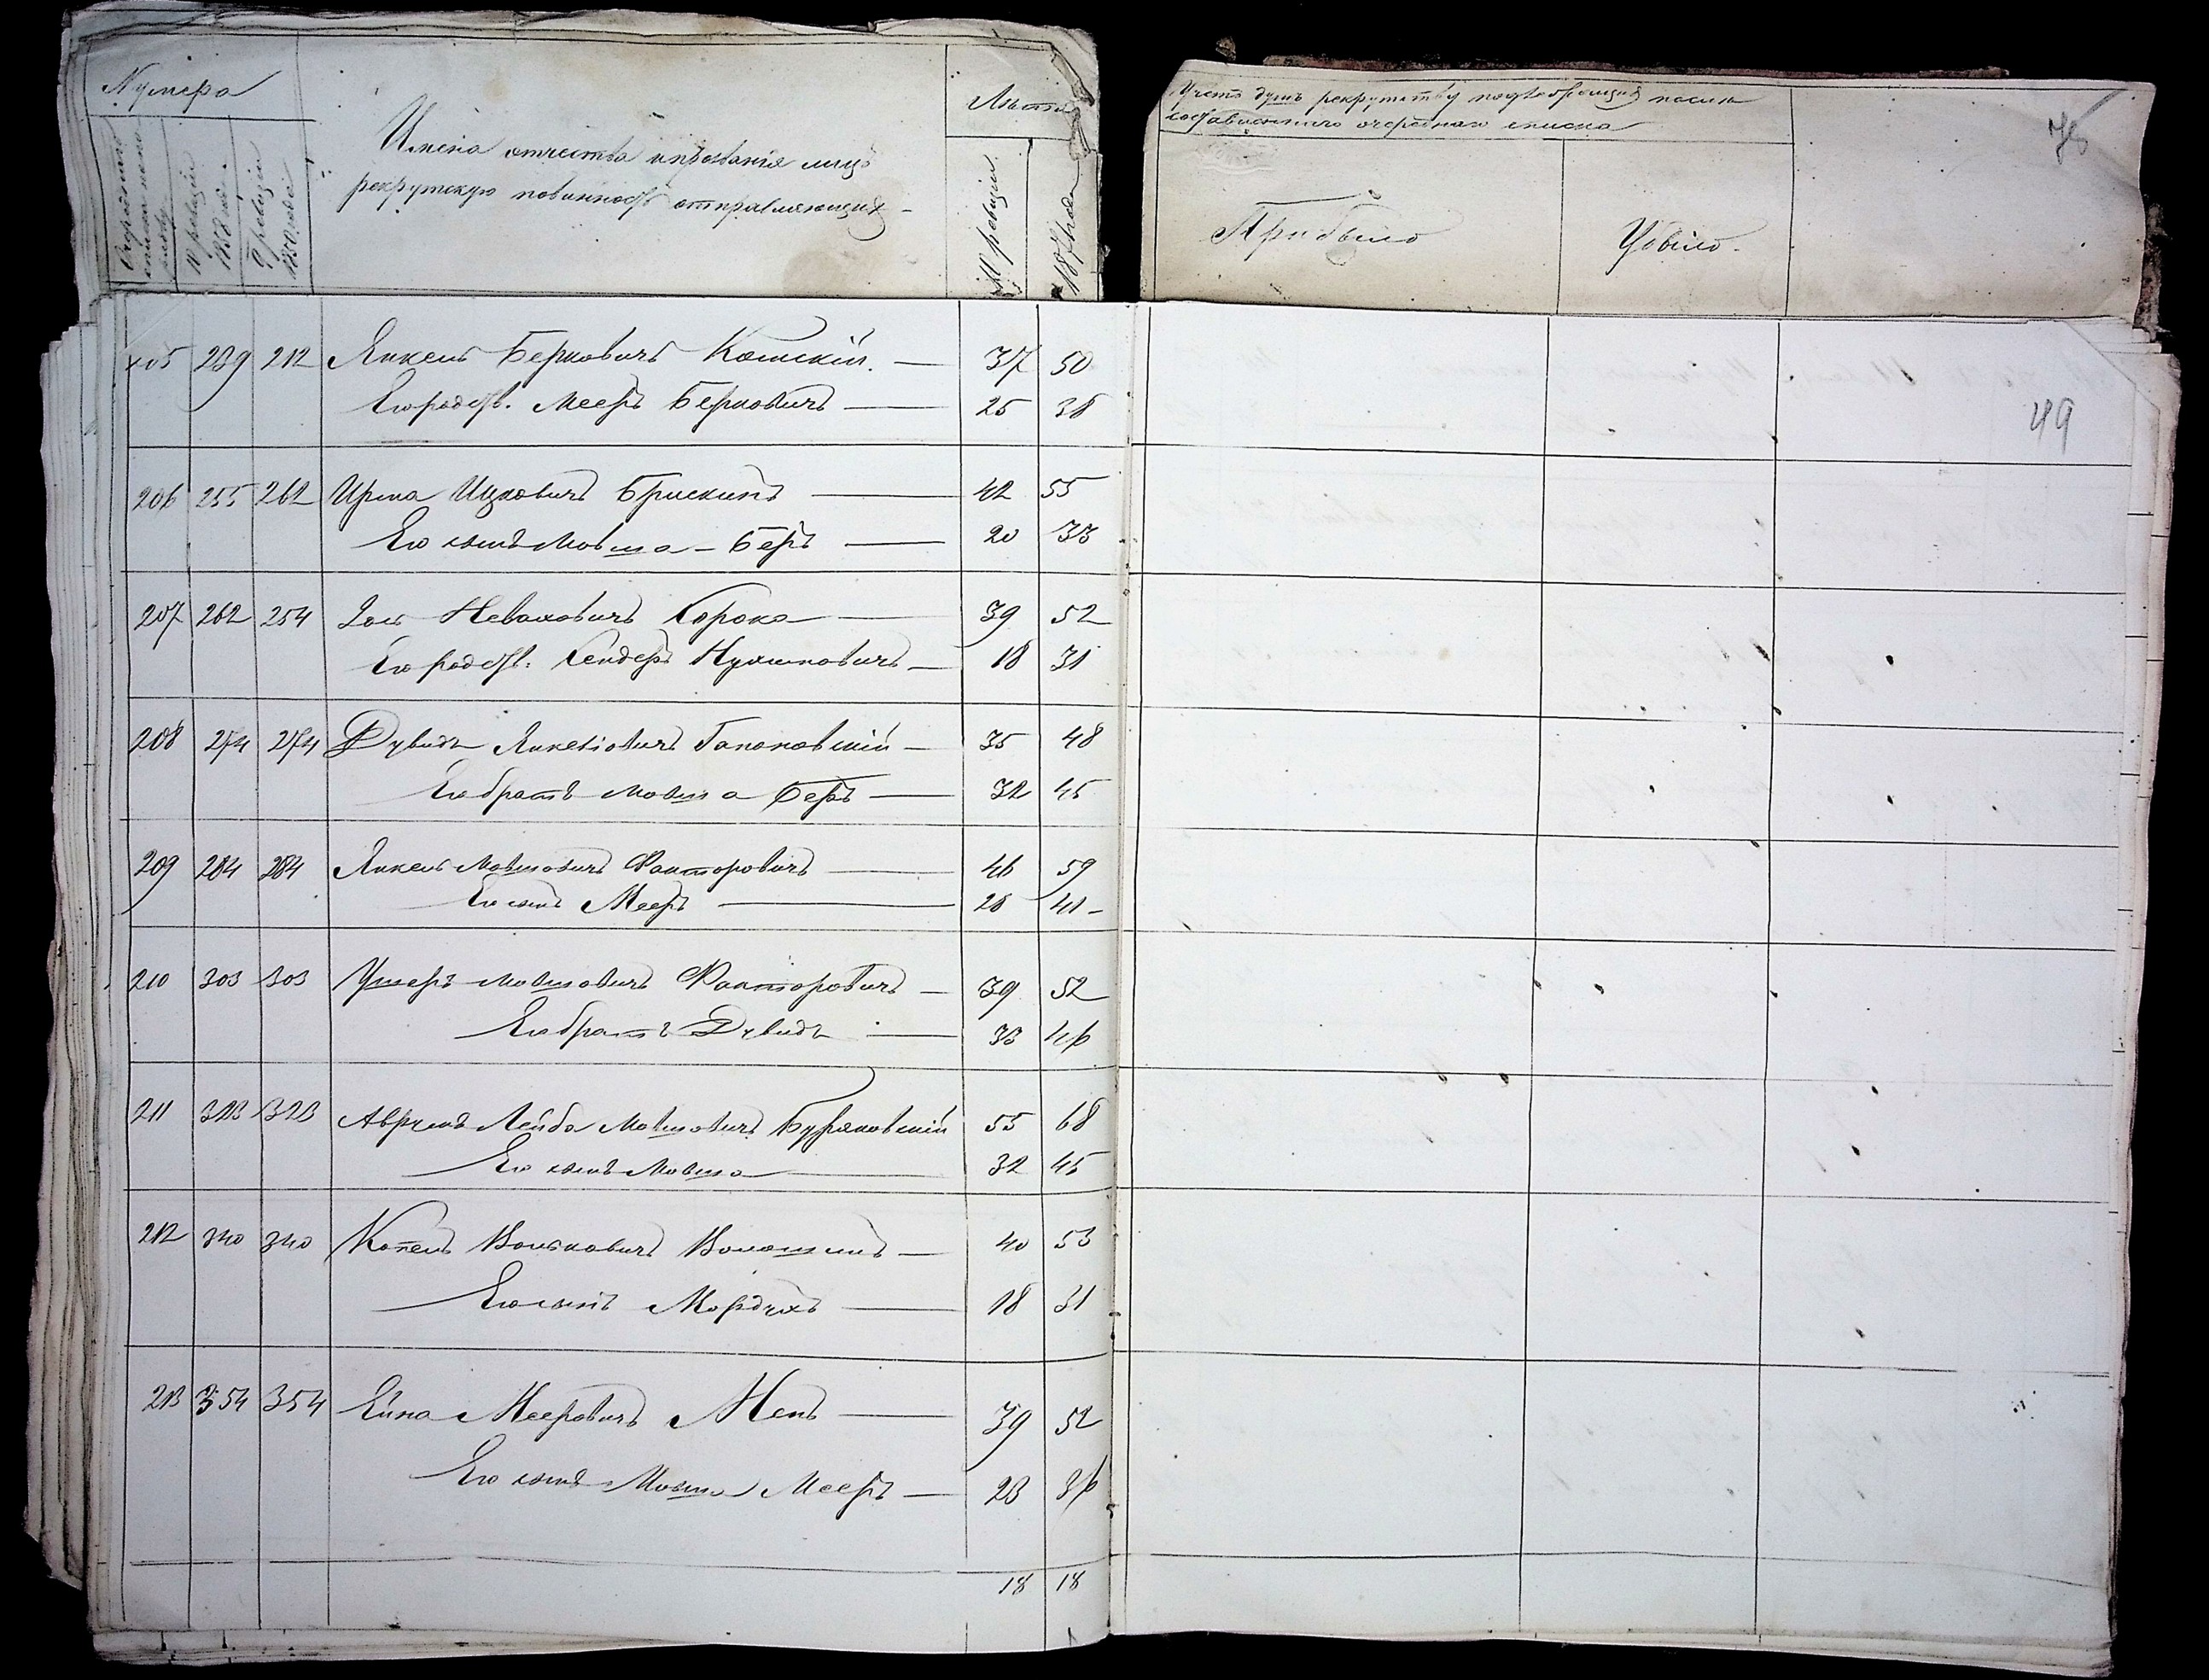 Нумера
Очереднаго списка
10 ревизіи 1858 года
9 ревизіи 1850 годъ
Имена отчества и прозванія лицъ
рекрутскую повинность отправляющихъ
Лѣта
10 ревизіи
1871 года
Учетъ душъ рекрутству послѣ
составленнаго очереднаго списка
Прибыло
Убыло.
205 239 212 Янкель Берковичъ Кошскій. — 37 50
Его родств. Мееръ Берковичъ — 25 38
206 255 262 Ицковичъ Брискинъ — 42 55
Его сынъ Мовша-Беръ — 20 33
207 262 254 Неваховичъ Сорока — 39 52
Его родств. Сендеръ — 18 31
208 274 274 Дувидъ Янкеліовичъ Гапоновскій — 35 48
Его братъ Мовша Беръ — 32 45
209 284 284 Янкель Мовшовичъ Факторовичъ — 46 59
Его сынъ Мееръ — 28 41
210 303 303 Ушеръ Мовшовичъ Факторовичъ — 39 52
Его братъ Дувидъ — 33 46
211 323 323 Аврумъ Лейба Мовшовичъ Буряковскій 55 68
Его сынъ Мовша — 32 45
212 340 340 Копель Вольковичъ Волошинъ — 40 53
Его сынъ Мордухъ — 18 31
213 354 354 Ейна Мееровичъ Менъ — 39 52
Его сынъ Мовша Мееръ — 23 36
18 18
49